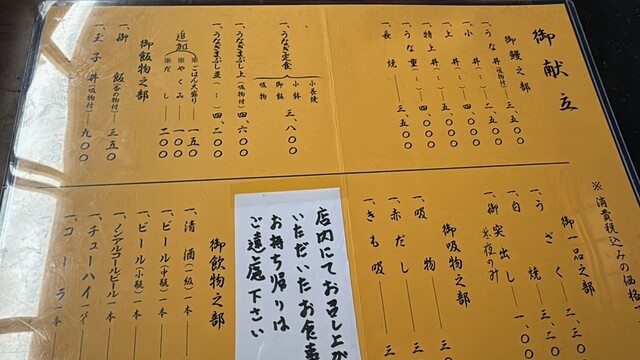 御献立
御鰻之部
一、うな丼(吸物付)三、五〇〇
一、小丼(〃)二、五〇〇
一、上丼(〃)四、〇〇〇
一、特上丼(〃)
一、うな重(〃)
一、長焼 三、五〇〇
一、うなぎ定食 三、八〇〇
小長焼
小鉢
御飯
吸物
一、うなぎまぶし上(吸物付)四、六〇〇
一、うなぎまぶし並(〃)四、二〇〇
追加
※ごはん大盛り 一五〇
※やくみ 一〇〇
※だし 二〇〇
御飯物之部
一、御飯(香の物付)三五〇
一、玉子丼(吸物付)九〇〇
※消費税込みの価格
御一品之部
一、うざく 二、
一、う焼 三、二〇
一、白焼
一、御突出し 一〇〇
※夜のみ
御吸物之部
一、吸物 三
一、赤だし 三
一、きも吸 三
店内にてお召し上が
いただいたお食事
お持ち帰りは
ご遠慮下さい
御飲物之部
一、清酒(一級)一本
一、ビール(中瓶)一本
一、ビール(小瓶)一本
一、ノンアルコールビール一本
一、チューハイ
一、コーラ 一本